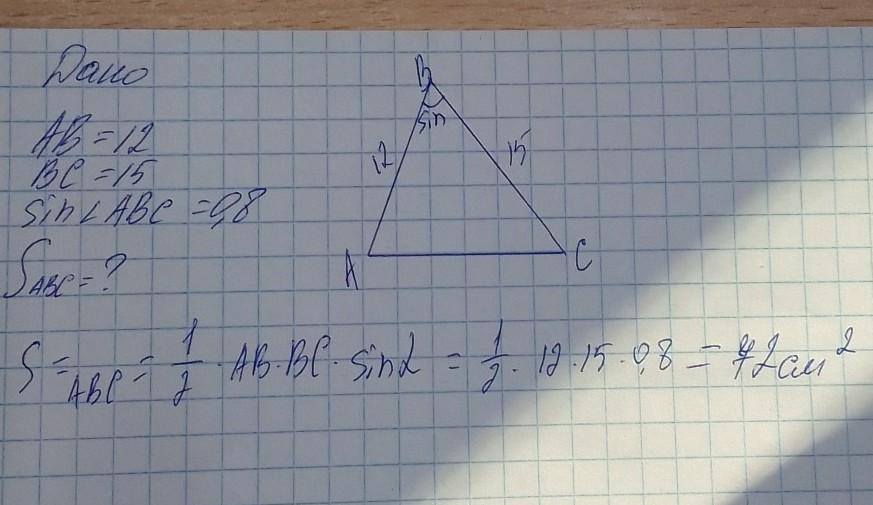 Дано
AB = 12
BC = 15
sin∠ABC = 0,8
S ABC = ?
B
sin
12
15
A
C
S = ABC = 1/2 · AB · BC · sin α = 1/2 · 12 · 15 · 0,8 = 72 см²